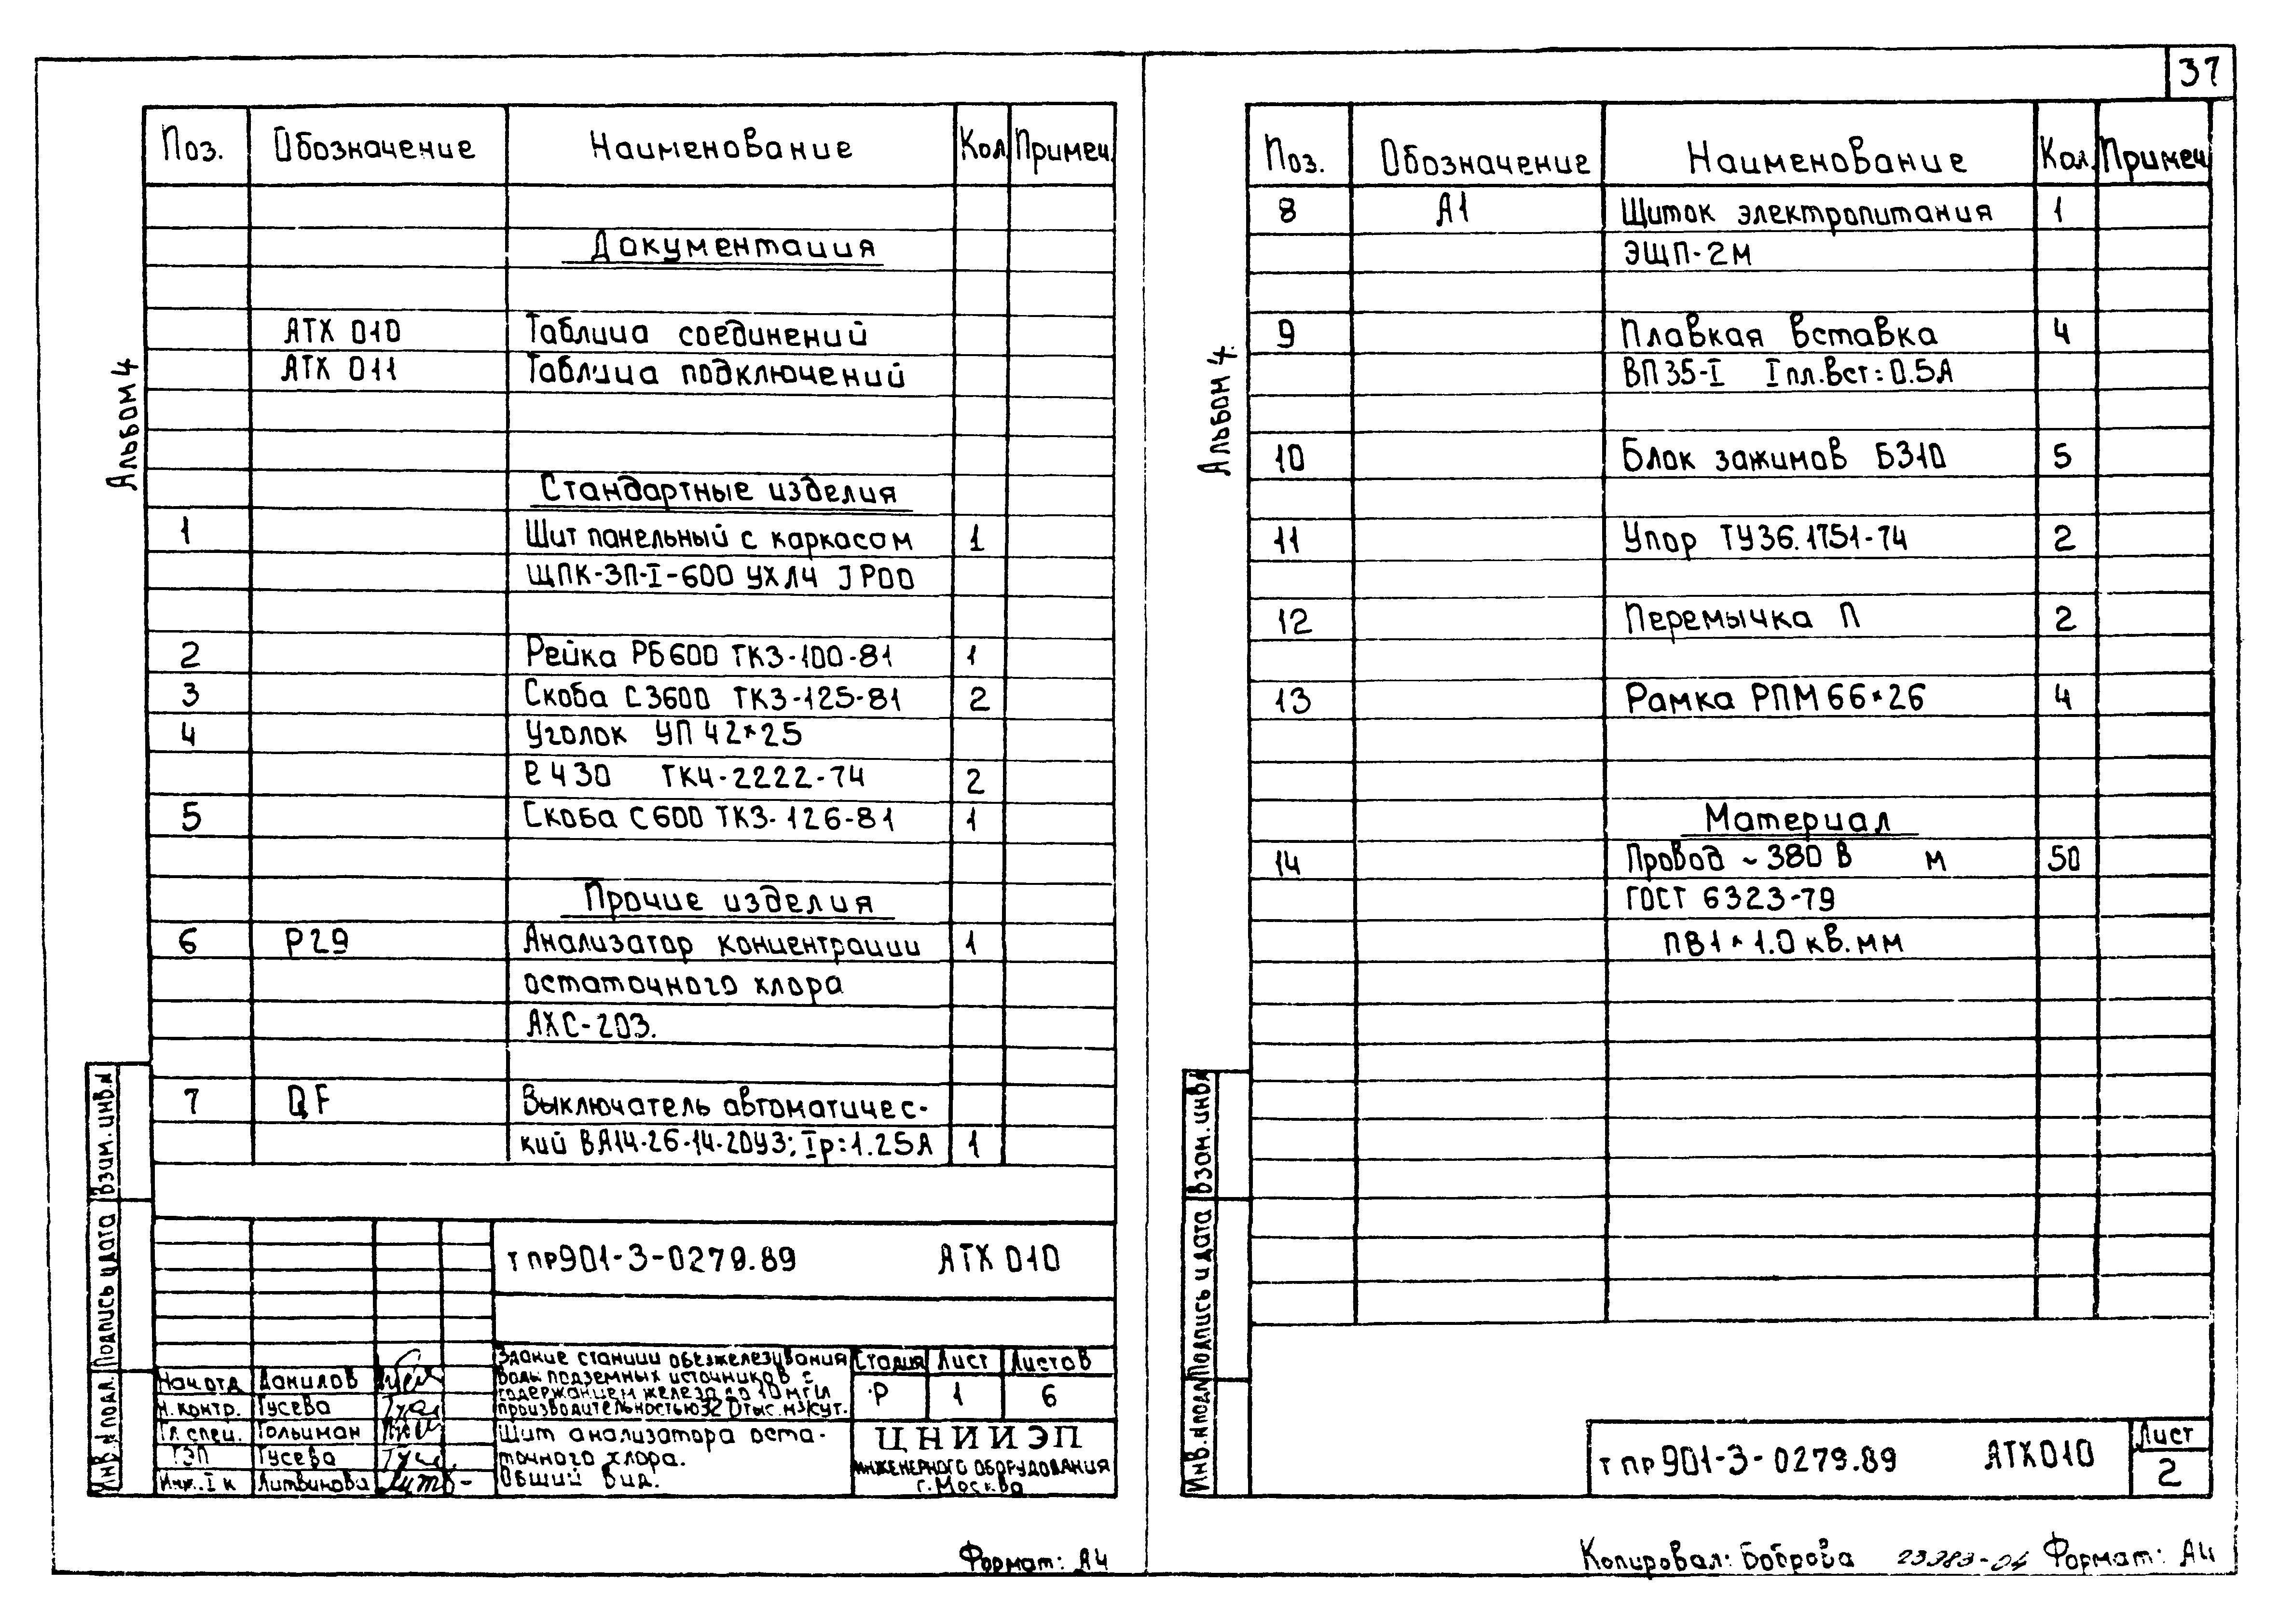 37
Альбом 4
Поз. Обозначение Наименование Кол Примеч.
Документация
АТХ 010 Таблица соединений
АТХ 011 Таблица подключений
Стандартные изделия
1 Щит панельный с каркасом 1
ЩПК-ЗП-I-600 УХЛ4 JP00
2 Рейка РБ600 ТК3-100-81 1
3 Скоба С3600 ТК3-125-81 2
4 Уголок УП 42×25
ℓ 430 ТК4-2222-74 2
5 Скоба С600 ТК3-126-81 1
Прочие изделия
6 Р29 Анализатор концентрации 1
остаточного хлора
АХС-203.
7 QF Выключатель автоматичес-
кий ВА14-26-14-20У3; Iр:1.25А 1
Взам. инв.N
Подпись и дата
Инв.N подл.
т пр 901-3-0279.89 АТХ 010
Здание станции обезжелезивания
воды подземных источников с
содержанием железа до 10 мг/л
производительностью 32 0 тыс. м³/сут.
Стадия Лист Листов
Р 1 6
Нач отд Данилов
Н. контр. Гусева
Гл. спец. Гольцман
ГЭП Гусева
Инж. I к Литвинова
Щит анализатора оста-
точного хлора.
Общий вид.
ЦНИИЭП
ИНЖЕНЕРНОГО ОБОРУДОВАНИЯ
г. Москва
Формат: А4
Альбом 4.
Поз. Обозначение Наименование Кол. Примеч
8 А1 Щиток электропитания 1
ЭЩП-2М
9 Плавкая вставка 4
ВП35-I I пл.вст:0.5А
10 Блок зажимов БЗ10 5
11 Упор ТУ36.1751-74 2
12 Перемычка П 2
13 Рамка РПМ 66×26 4
Материал
14 Провод ~ 380 В м 50
ГОСТ 6323-79
ПВ1 × 1.0 кв. мм
Взам. инв.N
Подпись и дата
Инв. N подл
т пр 901-3-0279.89 АТХ010
Лист
2
Копировал: Боброва 23983-04 Формат: А4